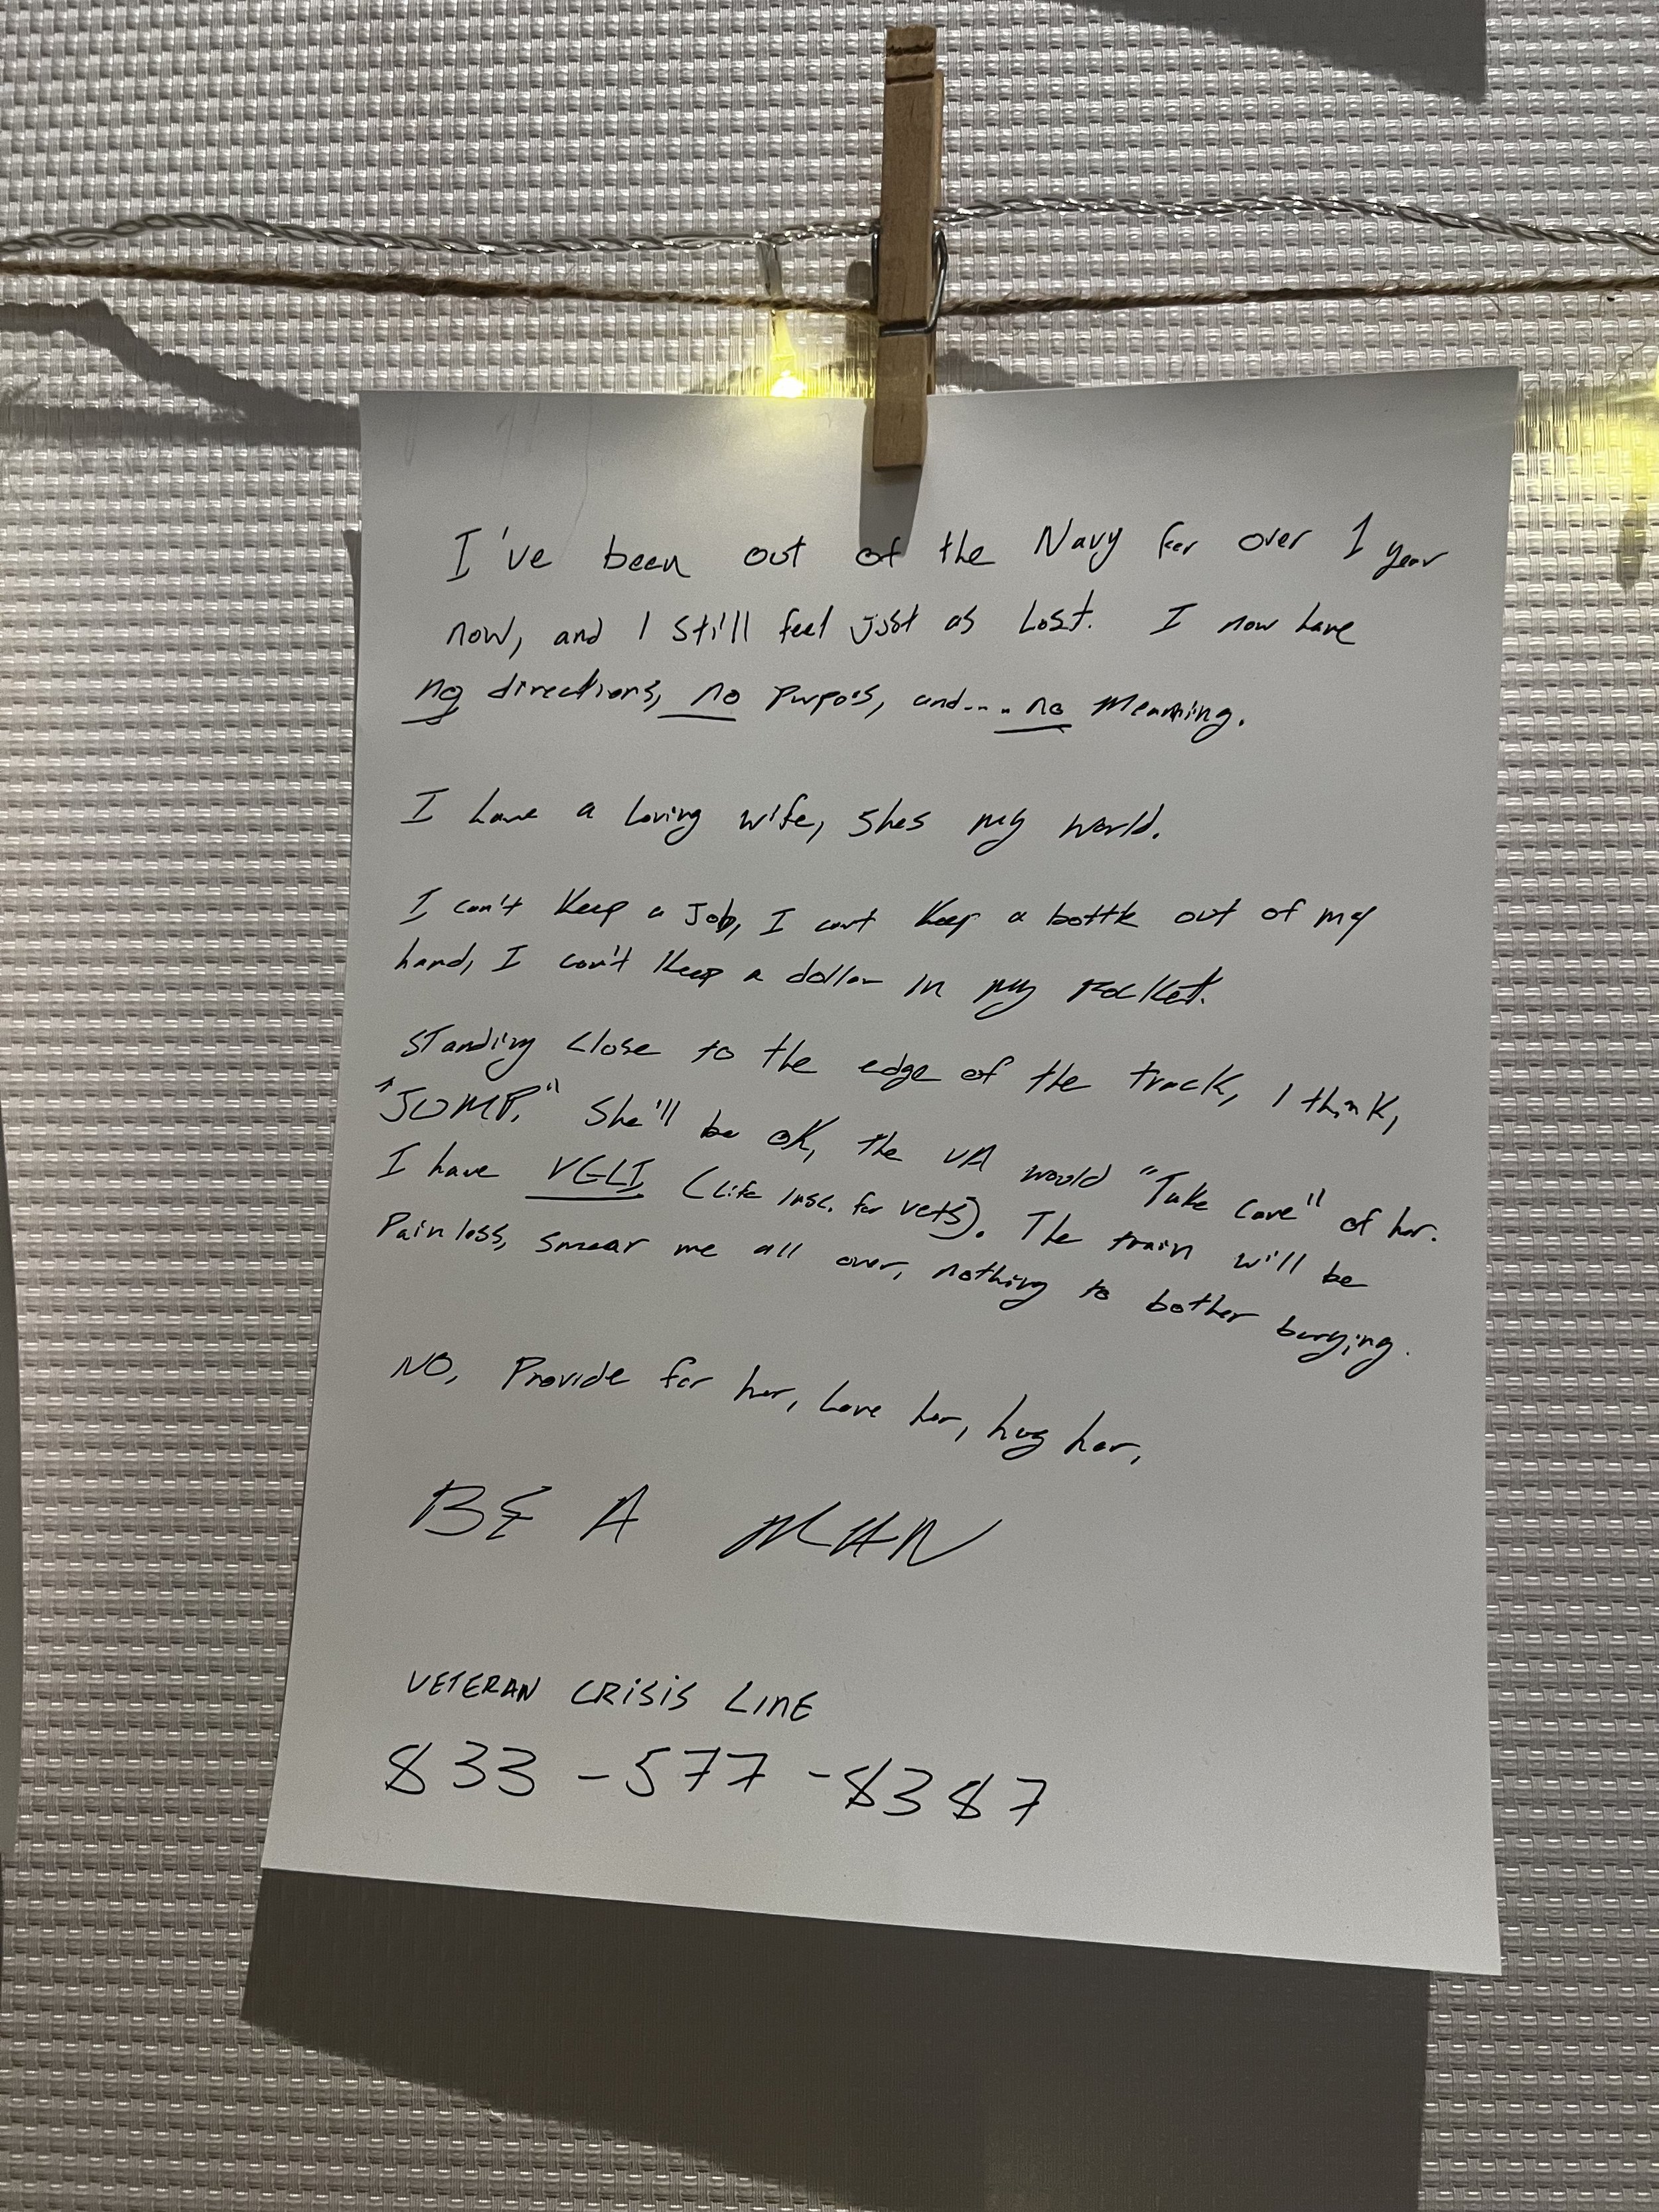 I've been out of the Navy for over 1 year
now, and I still feel just as Lost. I now have
no directions, no Purpos, and.... no Meanning.
I have a Loving wife, shes my world.
I can't Keep a Job, I cant Keep a bottle out of my
hand, I can't Keep a dollar in my Pocket.
Standing Close to the edge of the track, I think,
"JUMP." She'll be OK, the VA would "Take Care" of her.
I have VGLI (Life Insc. for vets). The train will be
Painless, smear me all over, nothing to bother burying.
NO, Provide for her, Love her, hug her,
BE A MAN
VETERAN CRISIS LINE
833-577-8387